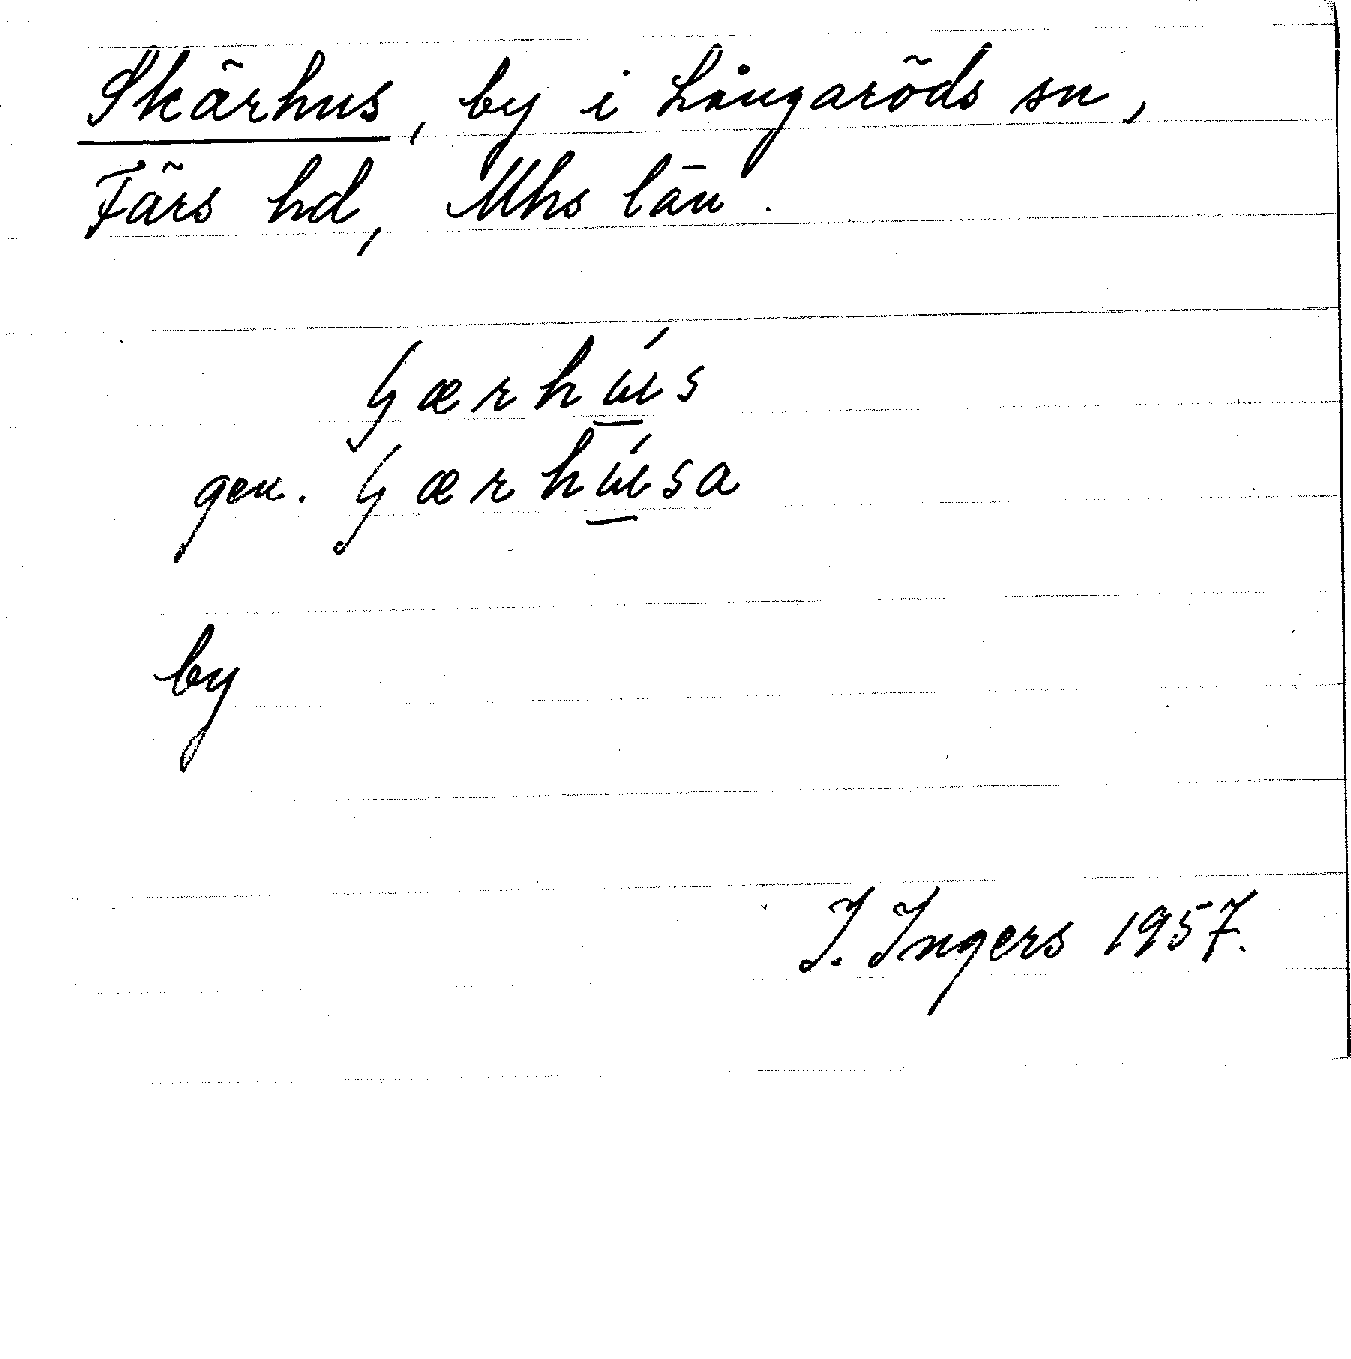 Skärhus, by i Långaröds sn,
Färs hd, Mhs län.
ʃærhús
gen. ʃærhúsa
by
I. Ingers 1957.